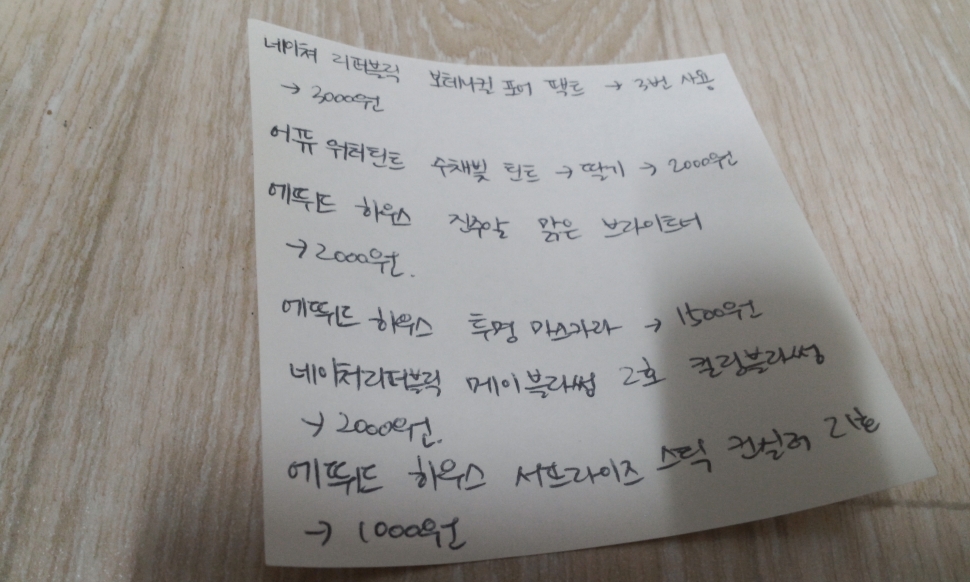 네이쳐 리퍼블릭 보태니컬 포어 팩트 → 3번 사용
→ 3000원
어퓨 워터틴트 수채빛 틴트 → 딸기 → 2000원
에뛰드 하우스 진주알 맑은 브라이트너
→ 2000원.
에뛰드 하우스 투명 마스카라 → 1500원
네이쳐리퍼블릭 메이블라썸 2호 컬링블라썸
→ 2000원.
에뛰드 하우스 서프라이즈 스틱 컨실러 21호
→ 1000원